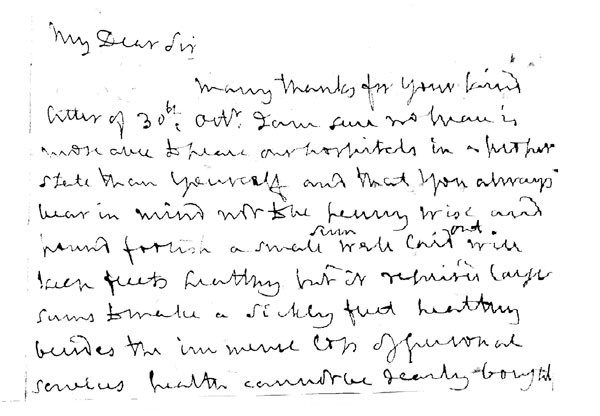 My Dear Sir
Many thanks for your kind
letter of 30th Octr. I am sure no man is
more able to place our hospitals in a proper
state than yourself and that you always
bear in mind not to be penny wise and
pound foolish a small sum well laid out will
keep fleets healthy but it requires large
sums to make a sickly fleet healthy
besides the immense loss of personal
services health cannot be dearly bought